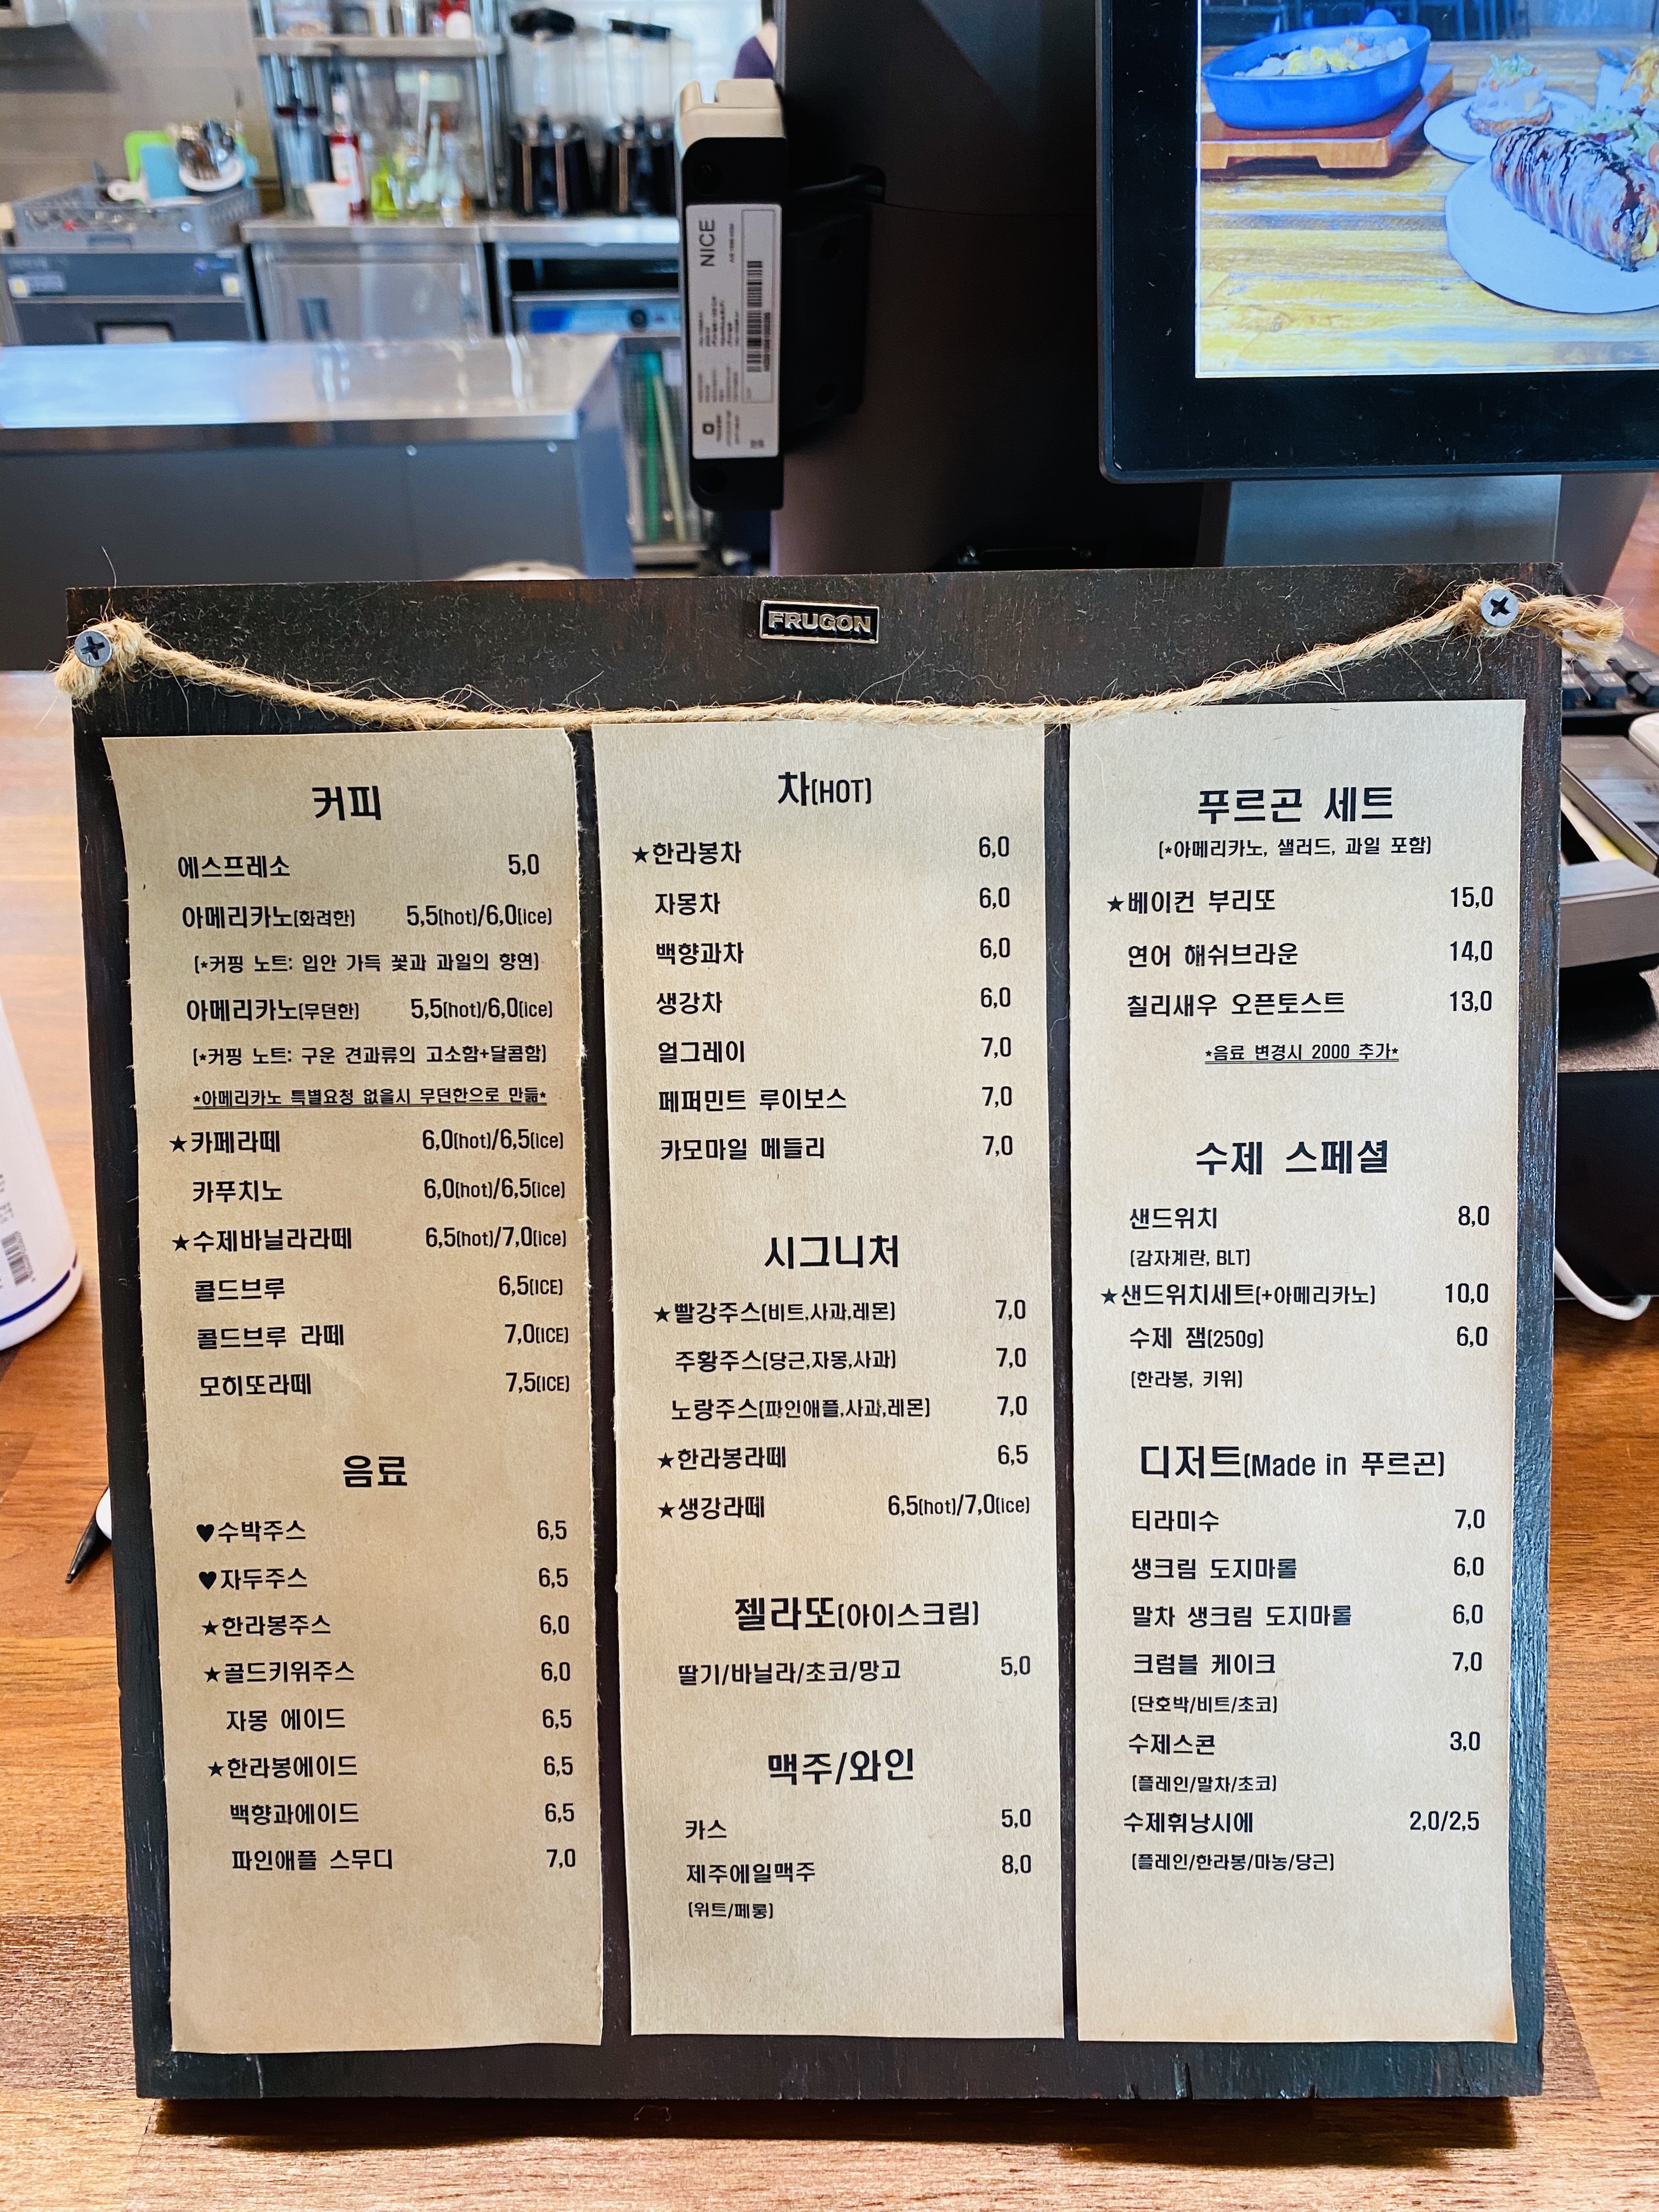 NICE
FRUGON
커피
에스프레소 5,0
아메리카노(화려한) 5,5(hot)/6,0(ice)
(*커핑 노트: 입안 가득 꽃과 과일의 향연)
아메리카노(무던한) 5,5(hot)/6,0(ice)
(*커핑 노트: 구운 견과류의 고소함+달콤함)
*아메리카노 특별요청 없을시 무던한으로 만듦*
★카페라떼 6,0(hot)/6,5(ice)
카푸치노 6,0(hot)/6,5(ice)
★수제바닐라라떼 6,5(hot)/7,0(ice)
콜드브루 6,5(ICE)
콜드브루 라떼 7,0(ICE)
모히또라떼 7,5(ICE)
음료
♥수박주스 6,5
♥자두주스 6,5
★한라봉주스 6,0
★골드키위주스 6,0
자몽 에이드 6,5
★한라봉에이드 6,5
백향과에이드 6,5
파인애플 스무디 7,0
차(HOT)
★한라봉차 6,0
자몽차 6,0
백향과차 6,0
생강차 6,0
얼그레이 7,0
페퍼민트 루이보스 7,0
카모마일 메들리 7,0
시그니처
★빨강주스(비트,사과,레몬) 7,0
주황주스(당근,자몽,사과) 7,0
노랑주스(파인애플,사과,레몬) 7,0
★한라봉라떼 6,5
★생강라떼 6,5(hot)/7,0(ice)
젤라또(아이스크림)
딸기/바닐라/초코/망고 5,0
맥주/와인
카스 5,0
제주에일맥주 8,0
(위트/페롱)
푸르곤 세트
(*아메리카노, 샐러드, 과일 포함)
★베이컨 부리또 15,0
연어 해쉬브라운 14,0
칠리새우 오픈토스트 13,0
*음료 변경시 2000 추가*
수제 스페셜
샌드위치 8,0
(감자계란, BLT)
★샌드위치세트(+아메리카노) 10,0
수제 잼(250g) 6,0
(한라봉, 키위)
디저트(Made in 푸르곤)
티라미수 7,0
생크림 도지마롤 6,0
말차 생크림 도지마롤 6,0
크럼블 케이크 7,0
(단호박/비트/초코)
수제스콘 3,0
(플레인/말차/초코)
수제휘낭시에 2,0/2,5
(플레인/한라봉/마농/당근)